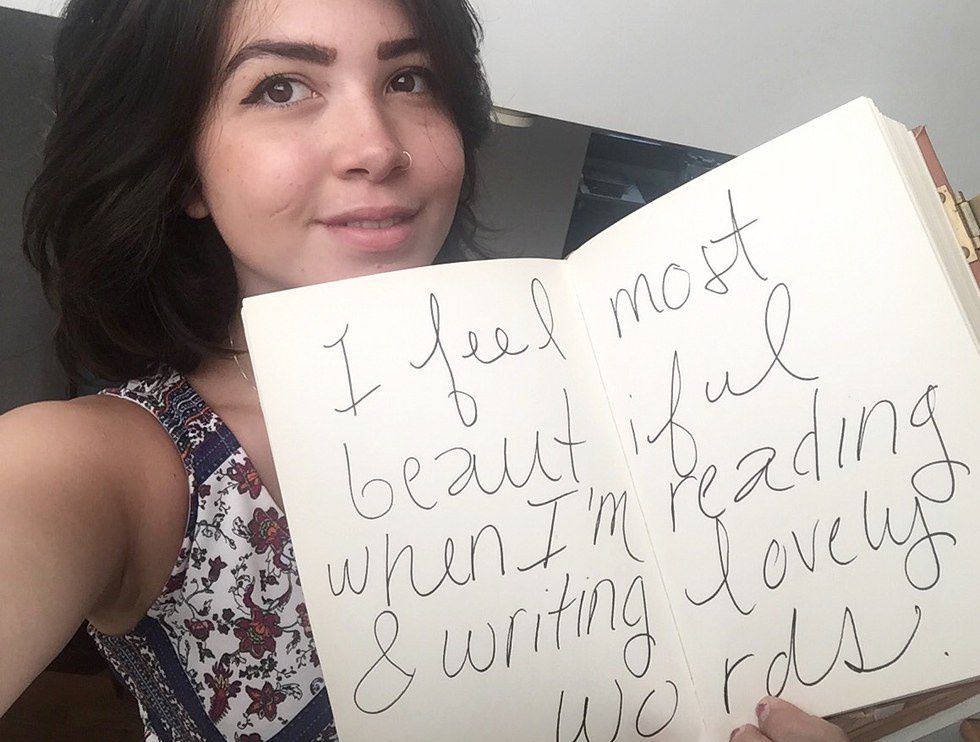 I feel most
beautiful
when I'm reading
& writing lovely
words.